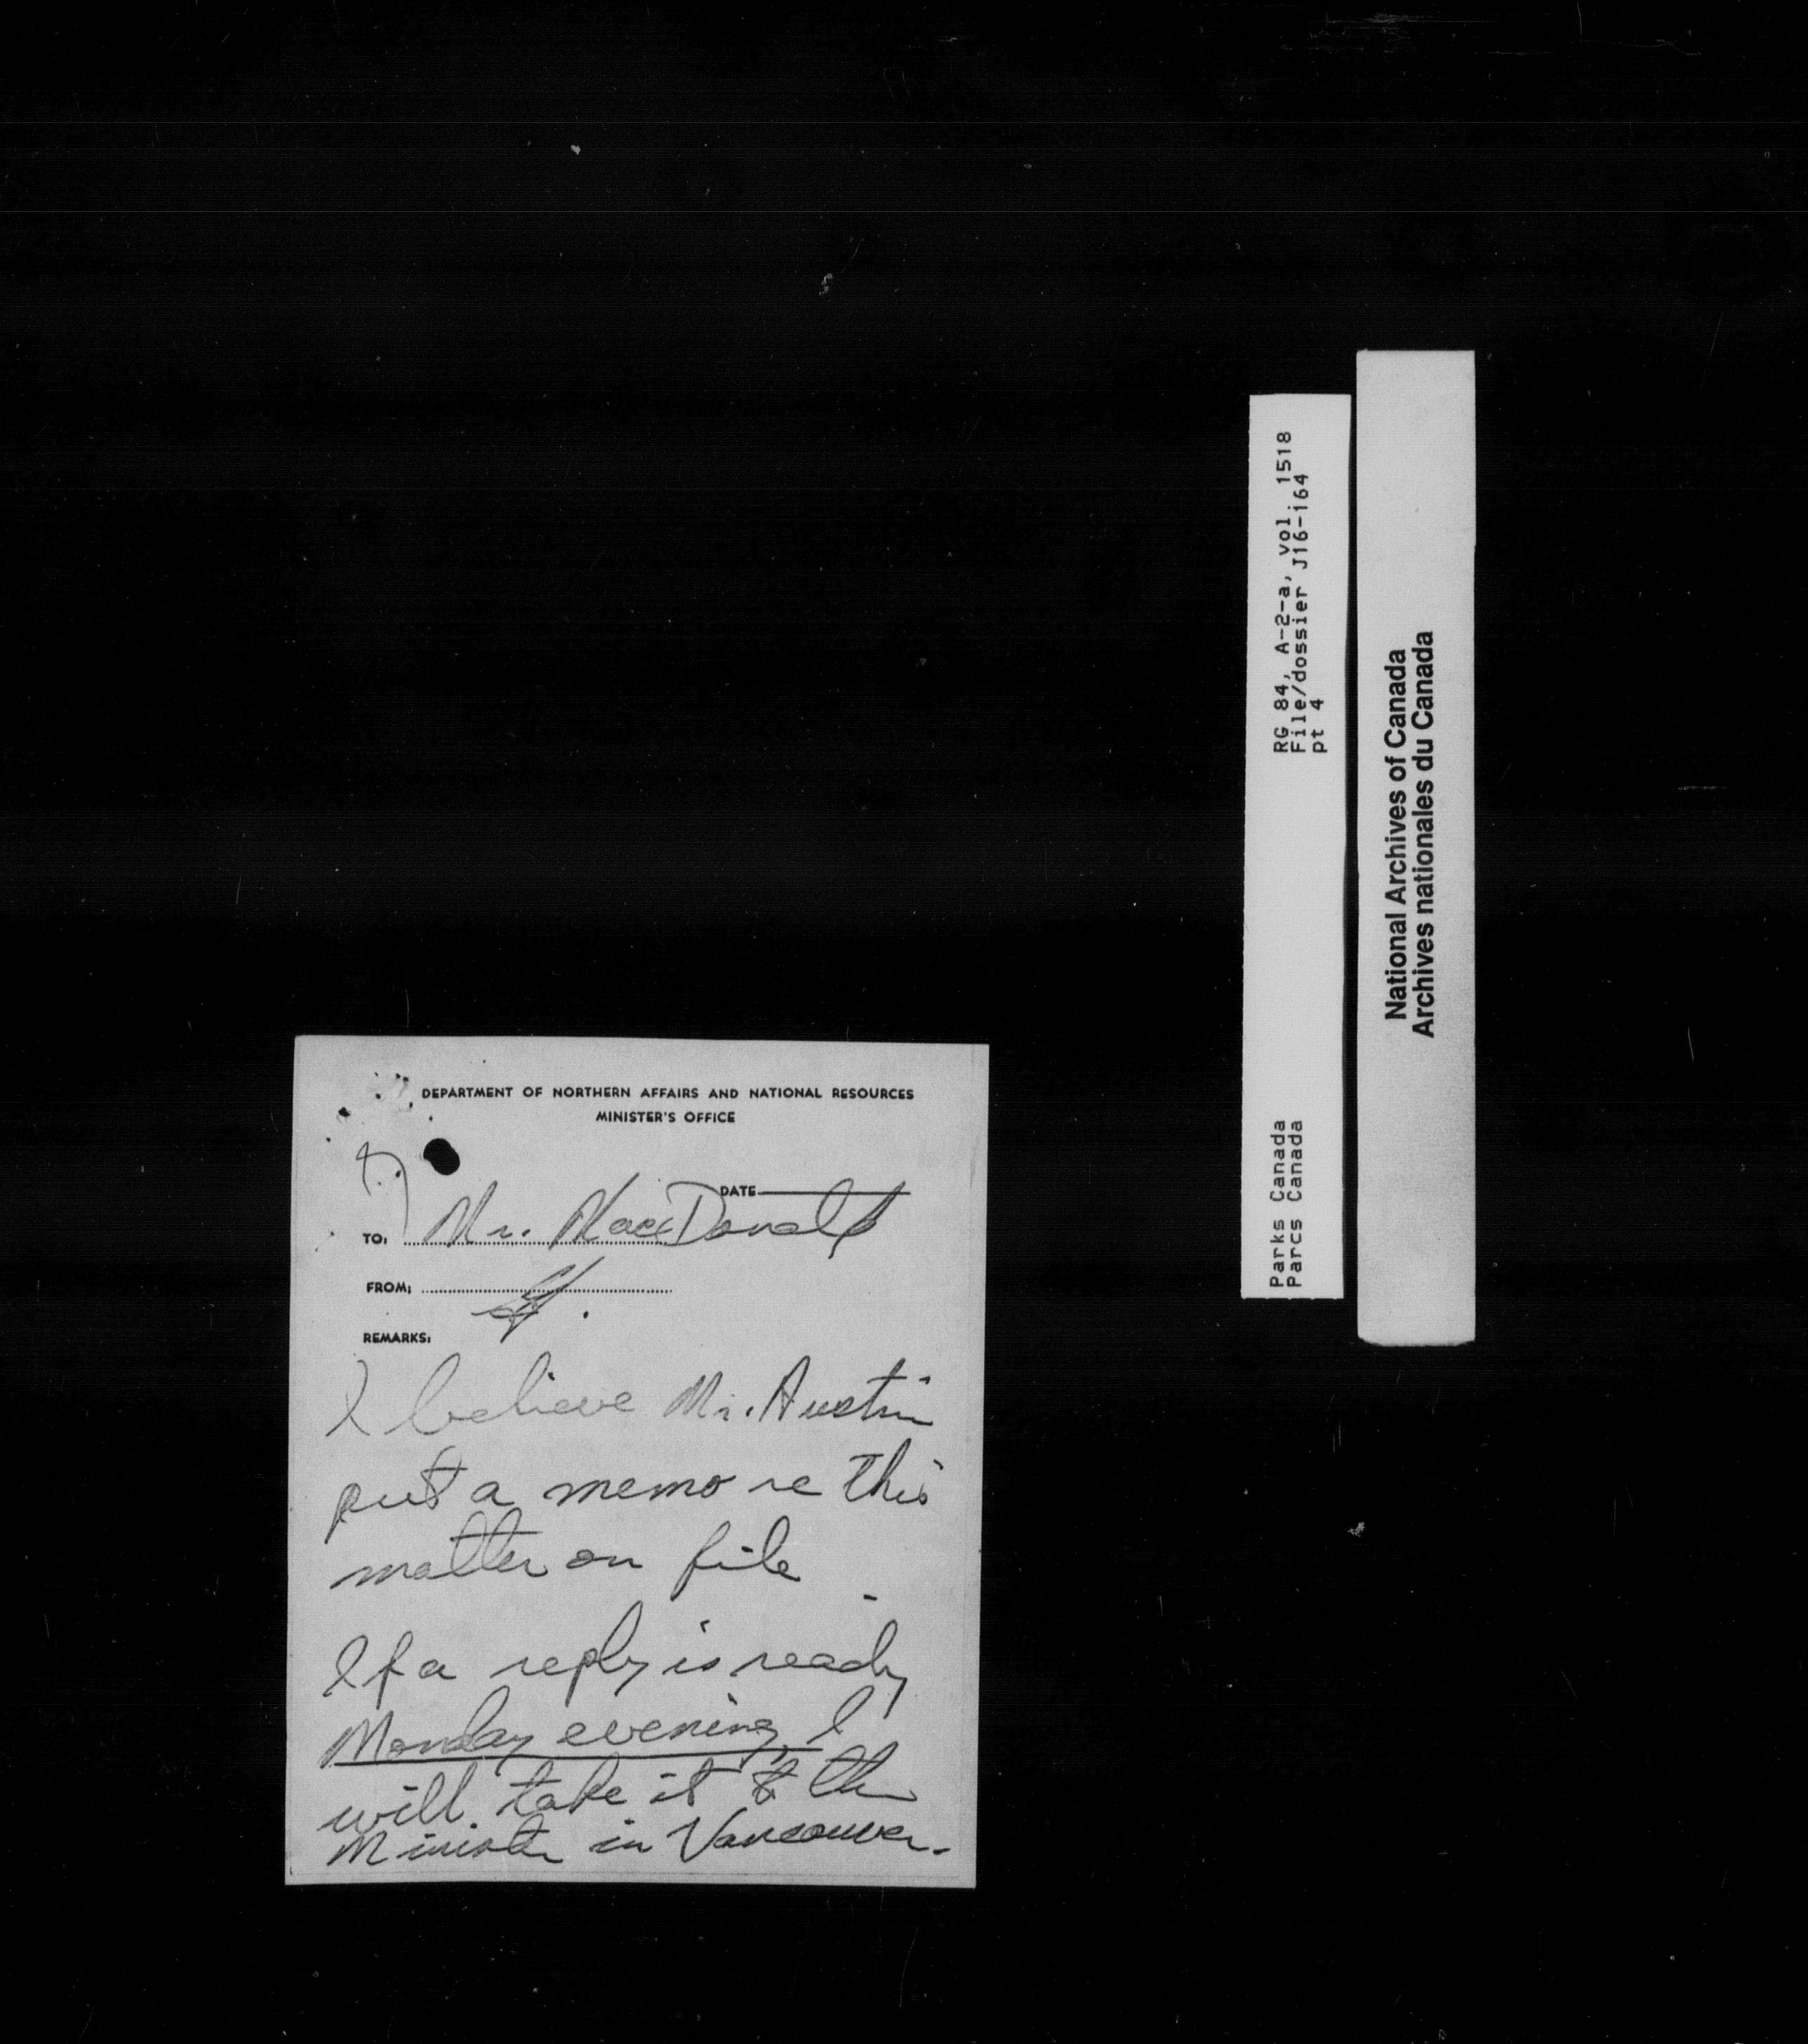 DEPARTMENT OF NORTHERN AFFAIRS AND NATIONAL RESOURCES
MINISTER'S OFFICE
DATE
TO: Mr. MacDonald
FROM:
REMARKS:
I believe Mr. Austin
put a memo re this
matter on file.
If a reply is ready
Monday evening, I
will take it to the
Minister in Vancouver.
RG 84, A-2-a, vol. 1518
File/dossier J16-164
pt 4
Parks Canada
Parcs Canada
National Archives of Canada
Archives nationales du Canada